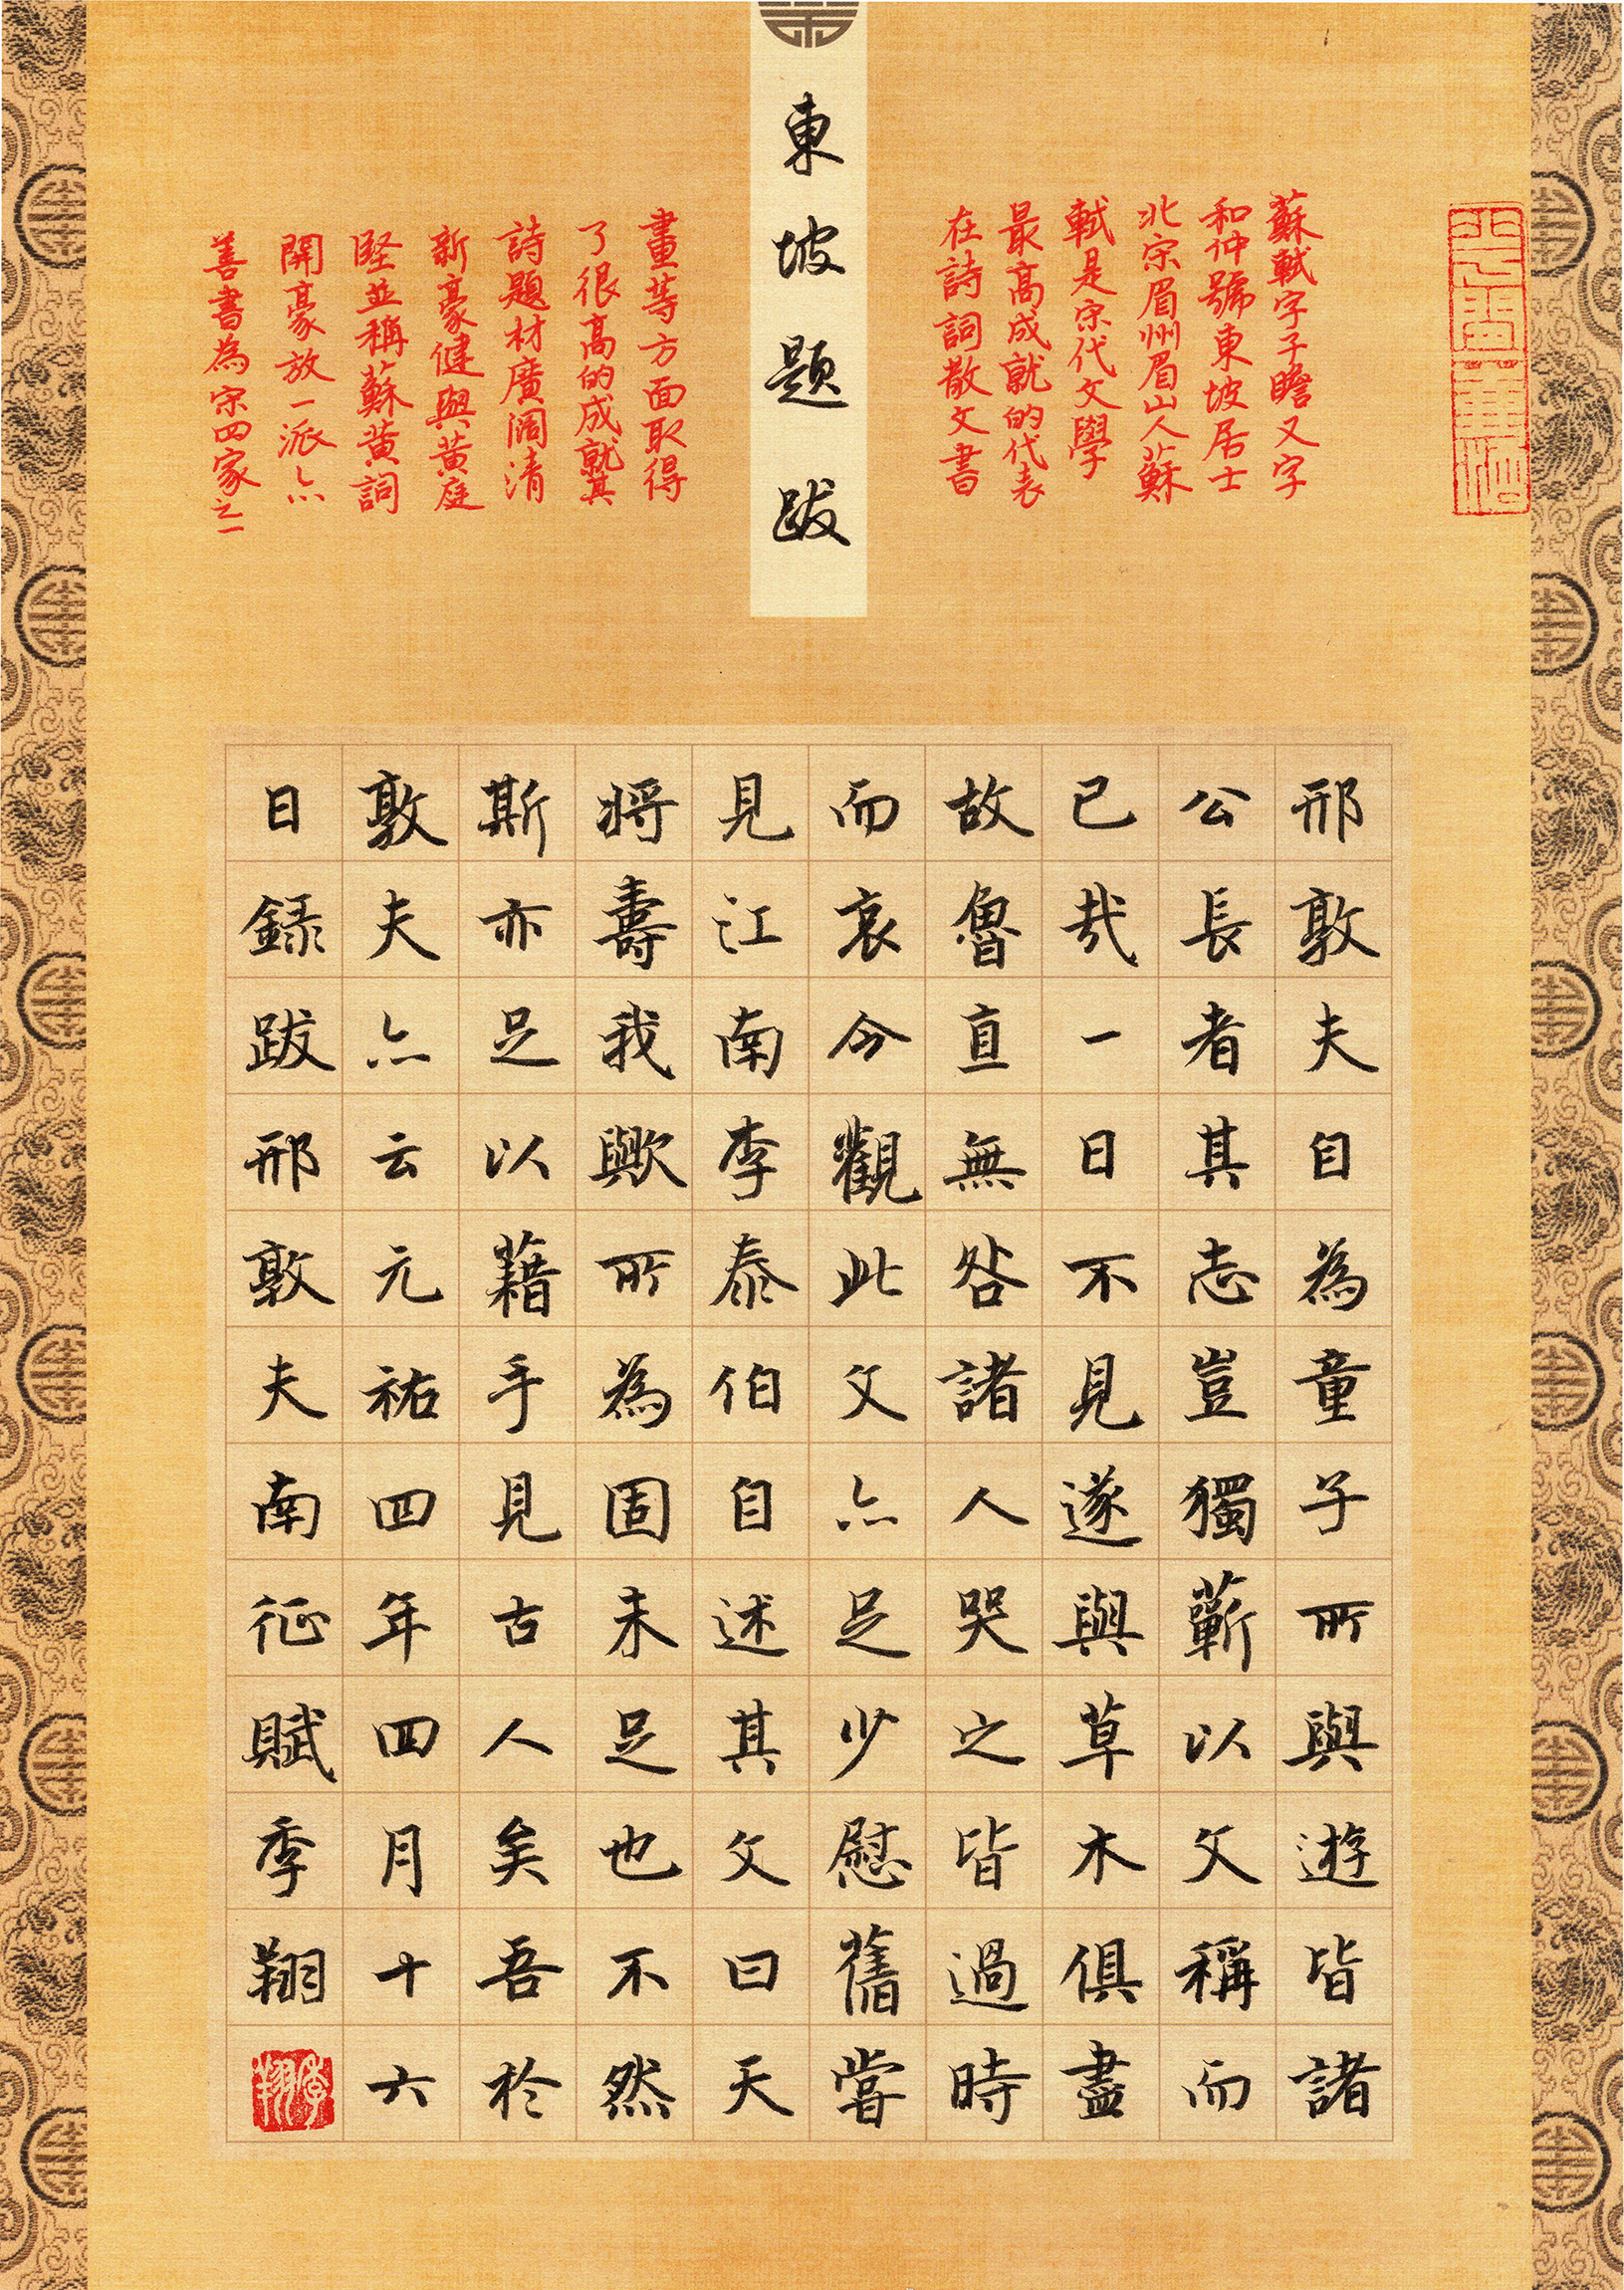 東坡題跋
蘇軾字子瞻又字
和仲號東坡居士
北宋眉州眉山人蘇
軾是宋代文學
最高成就的代表
在詩詞散文書
畫等方面取得
了很高的成就其
詩題材廣闊清
新豪健與黃庭
堅並稱蘇黃詞
開豪放一派亦
善書為宋四家之一
邢敦夫自為童子所與遊皆諸
公長者其志豈獨蘄以文稱而
已哉一日不見遂與草木俱盡
故魯直無咎諸人哭之皆過時
而哀今觀此文亦足少慰舊嘗
見江南李泰伯自述其文曰天
將壽我歟所為固未足也不然
斯亦足以藉手見古人矣吾於
敦夫亦云元祐四年四月十六
日錄跋邢敦夫南征賦季翔